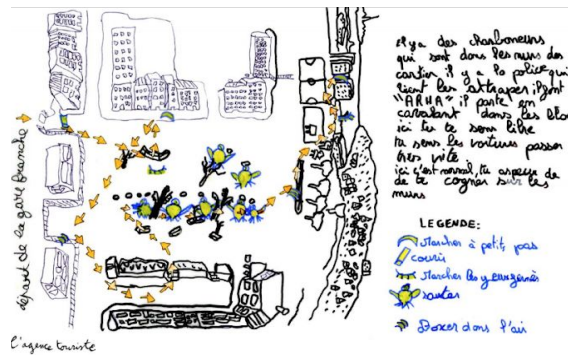 départ de la gare franche
il y a des charboneurs
qui sont dans les rues des
cartier il y a la police qui
vient les attraper ils font
"ARHA" il parte en
cavalant dans les blocs
ici tu te sens libre
tu sens les voitures passer
très vite
ici c'est normal, tu
de te cogner sur les
murs
LEGENDE:
Marcher à petits pas
courir
Marcher les yeux fermés
sauter
Boxer dans l'air
l'agence touriste